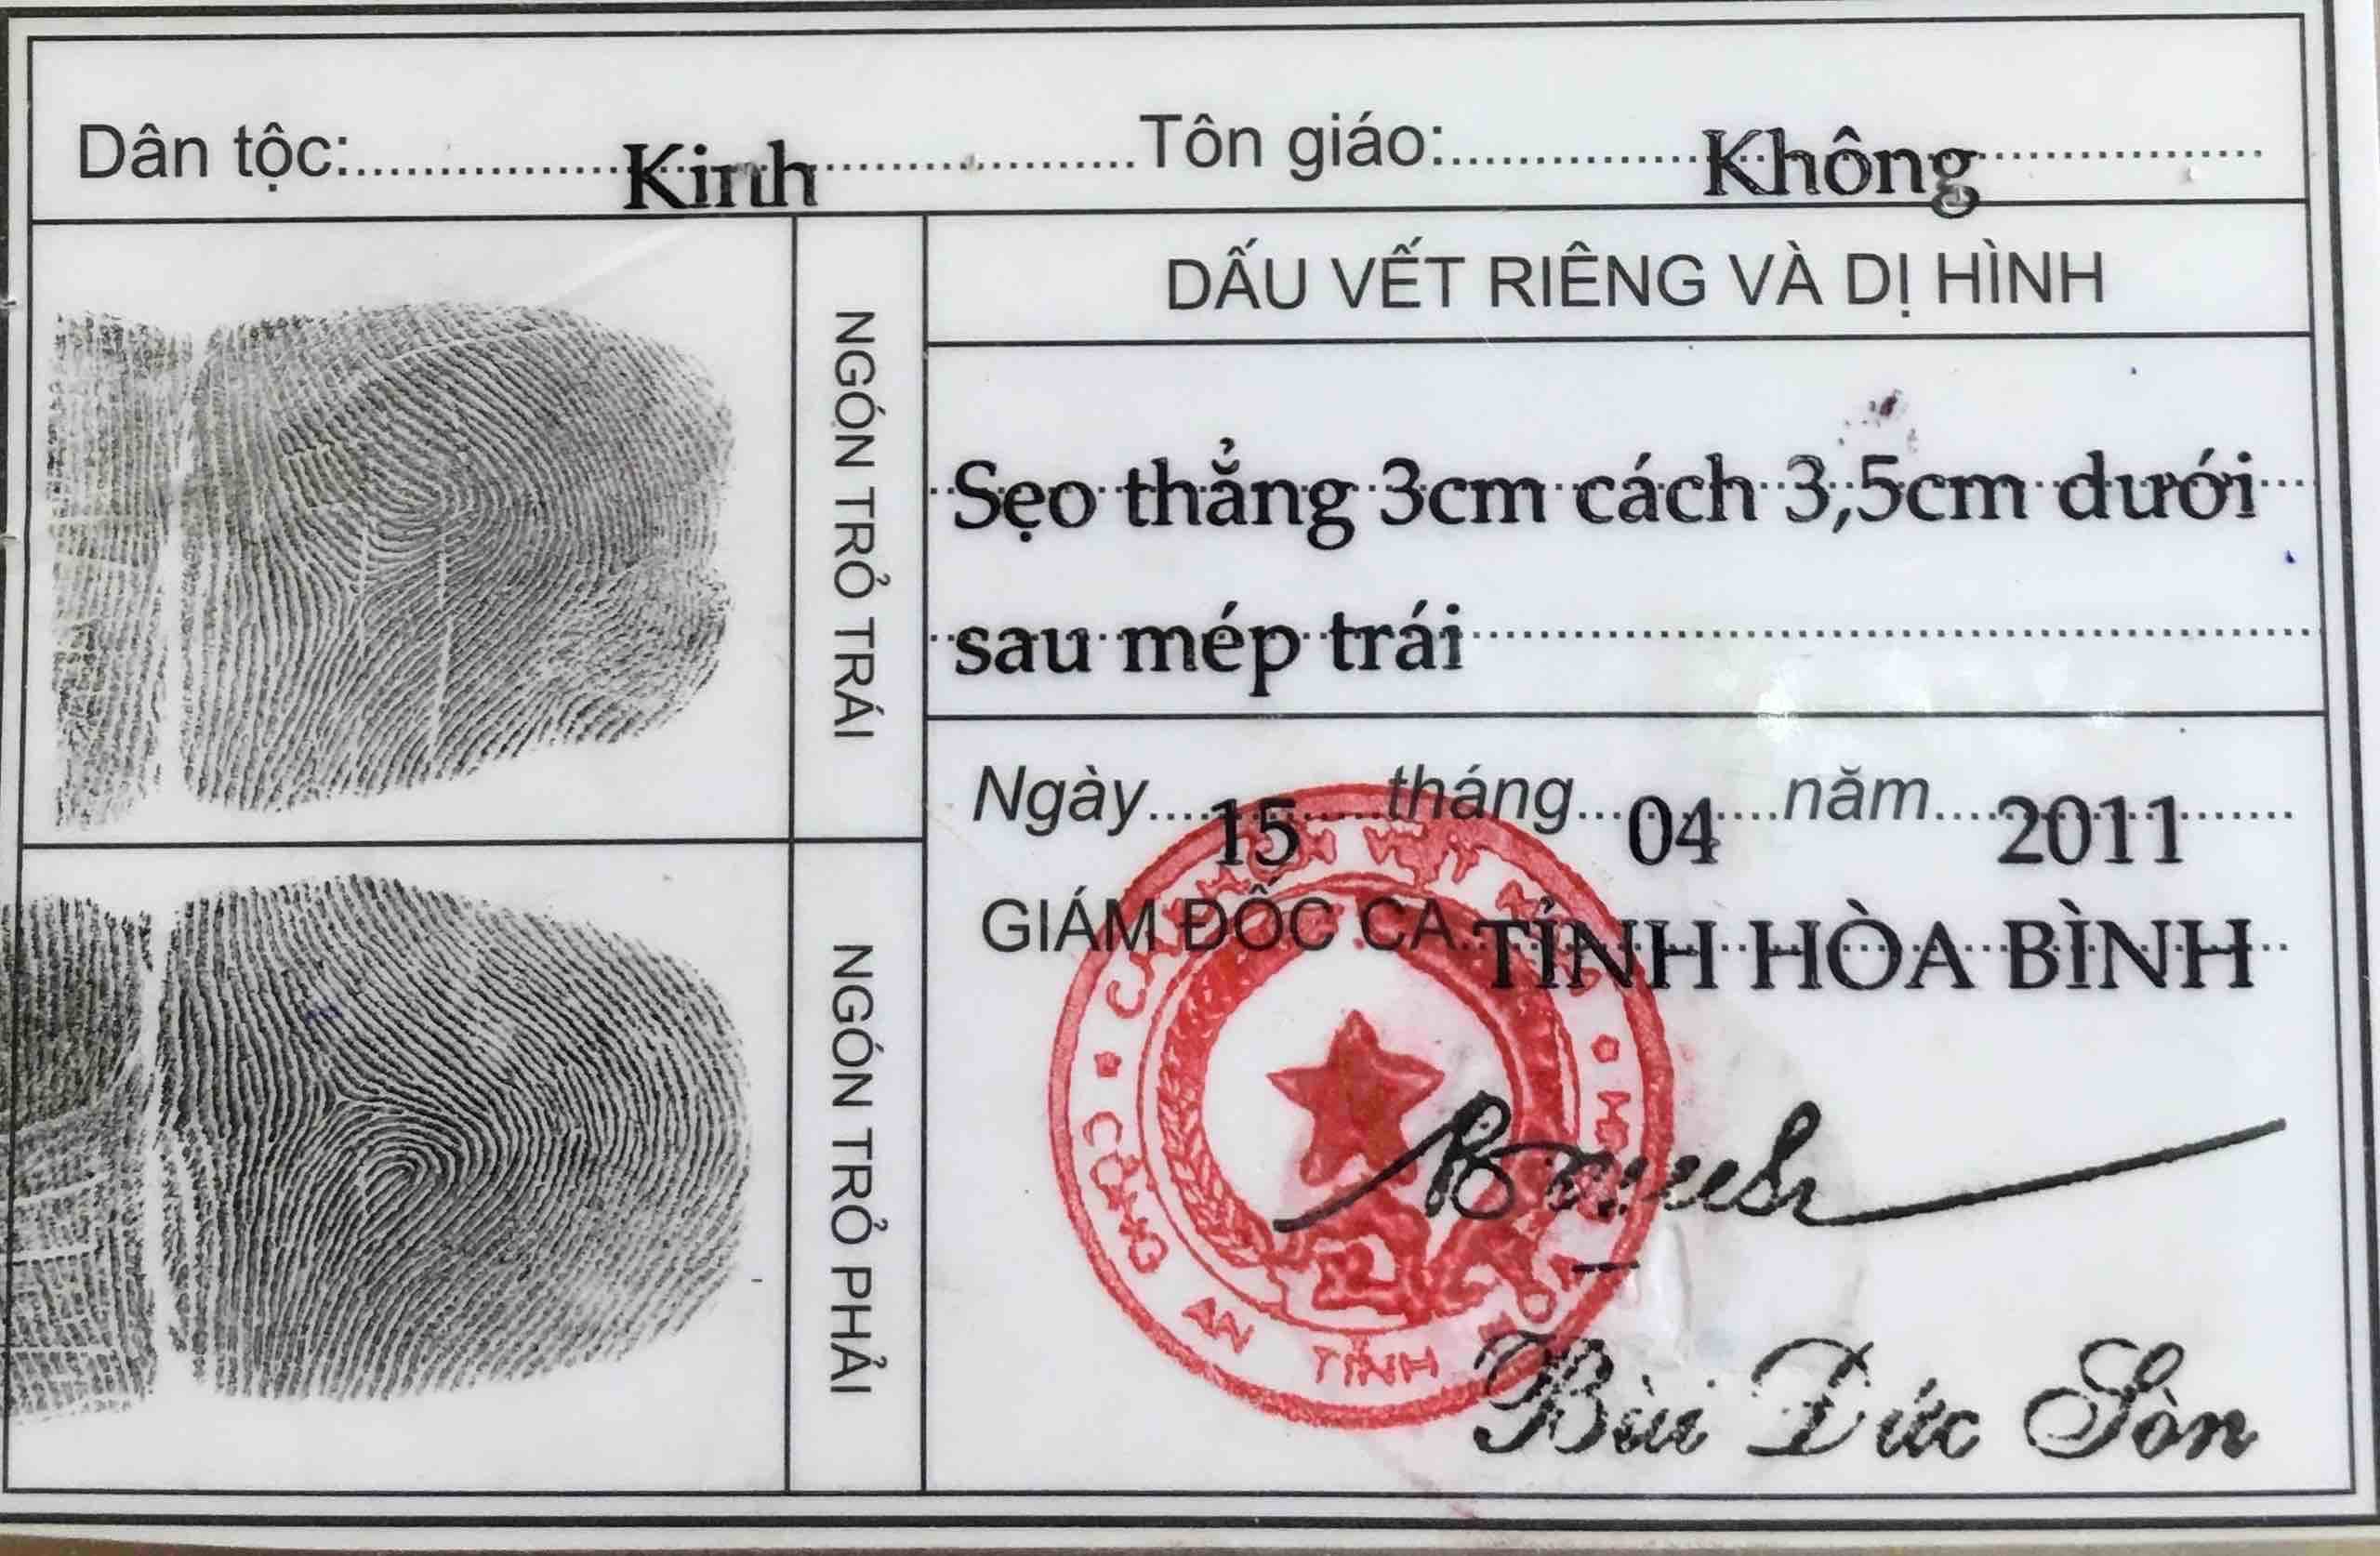 Dân tộc: Kinh Tôn giáo: Không
NGÓN TRỎ TRÁI
NGÓN TRỎ PHẢI
DẤU VẾT RIÊNG VÀ DỊ HÌNH
Sẹo thẳng 3cm cách 3,5cm dưới
sau mép trái
Ngày 15 tháng 04 năm 2011
GIÁM ĐỐC CA TỈNH HÒA BÌNH
CÔNG AN TỈNH
Bùi Đức Sòn